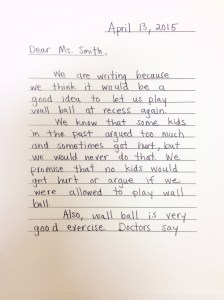 April 13, 2015
Dear Ms. Smith,
We are writing because
we think it would be a
good idea to let us play
wall ball at recess again.
We know that some kids
in the past argued too much
and sometimes got hurt, but
we would never do that. We
promise that no kids would
get hurt or argue if we
were allowed to play wall
ball.
Also, wall ball is very
good exercise. Doctors say